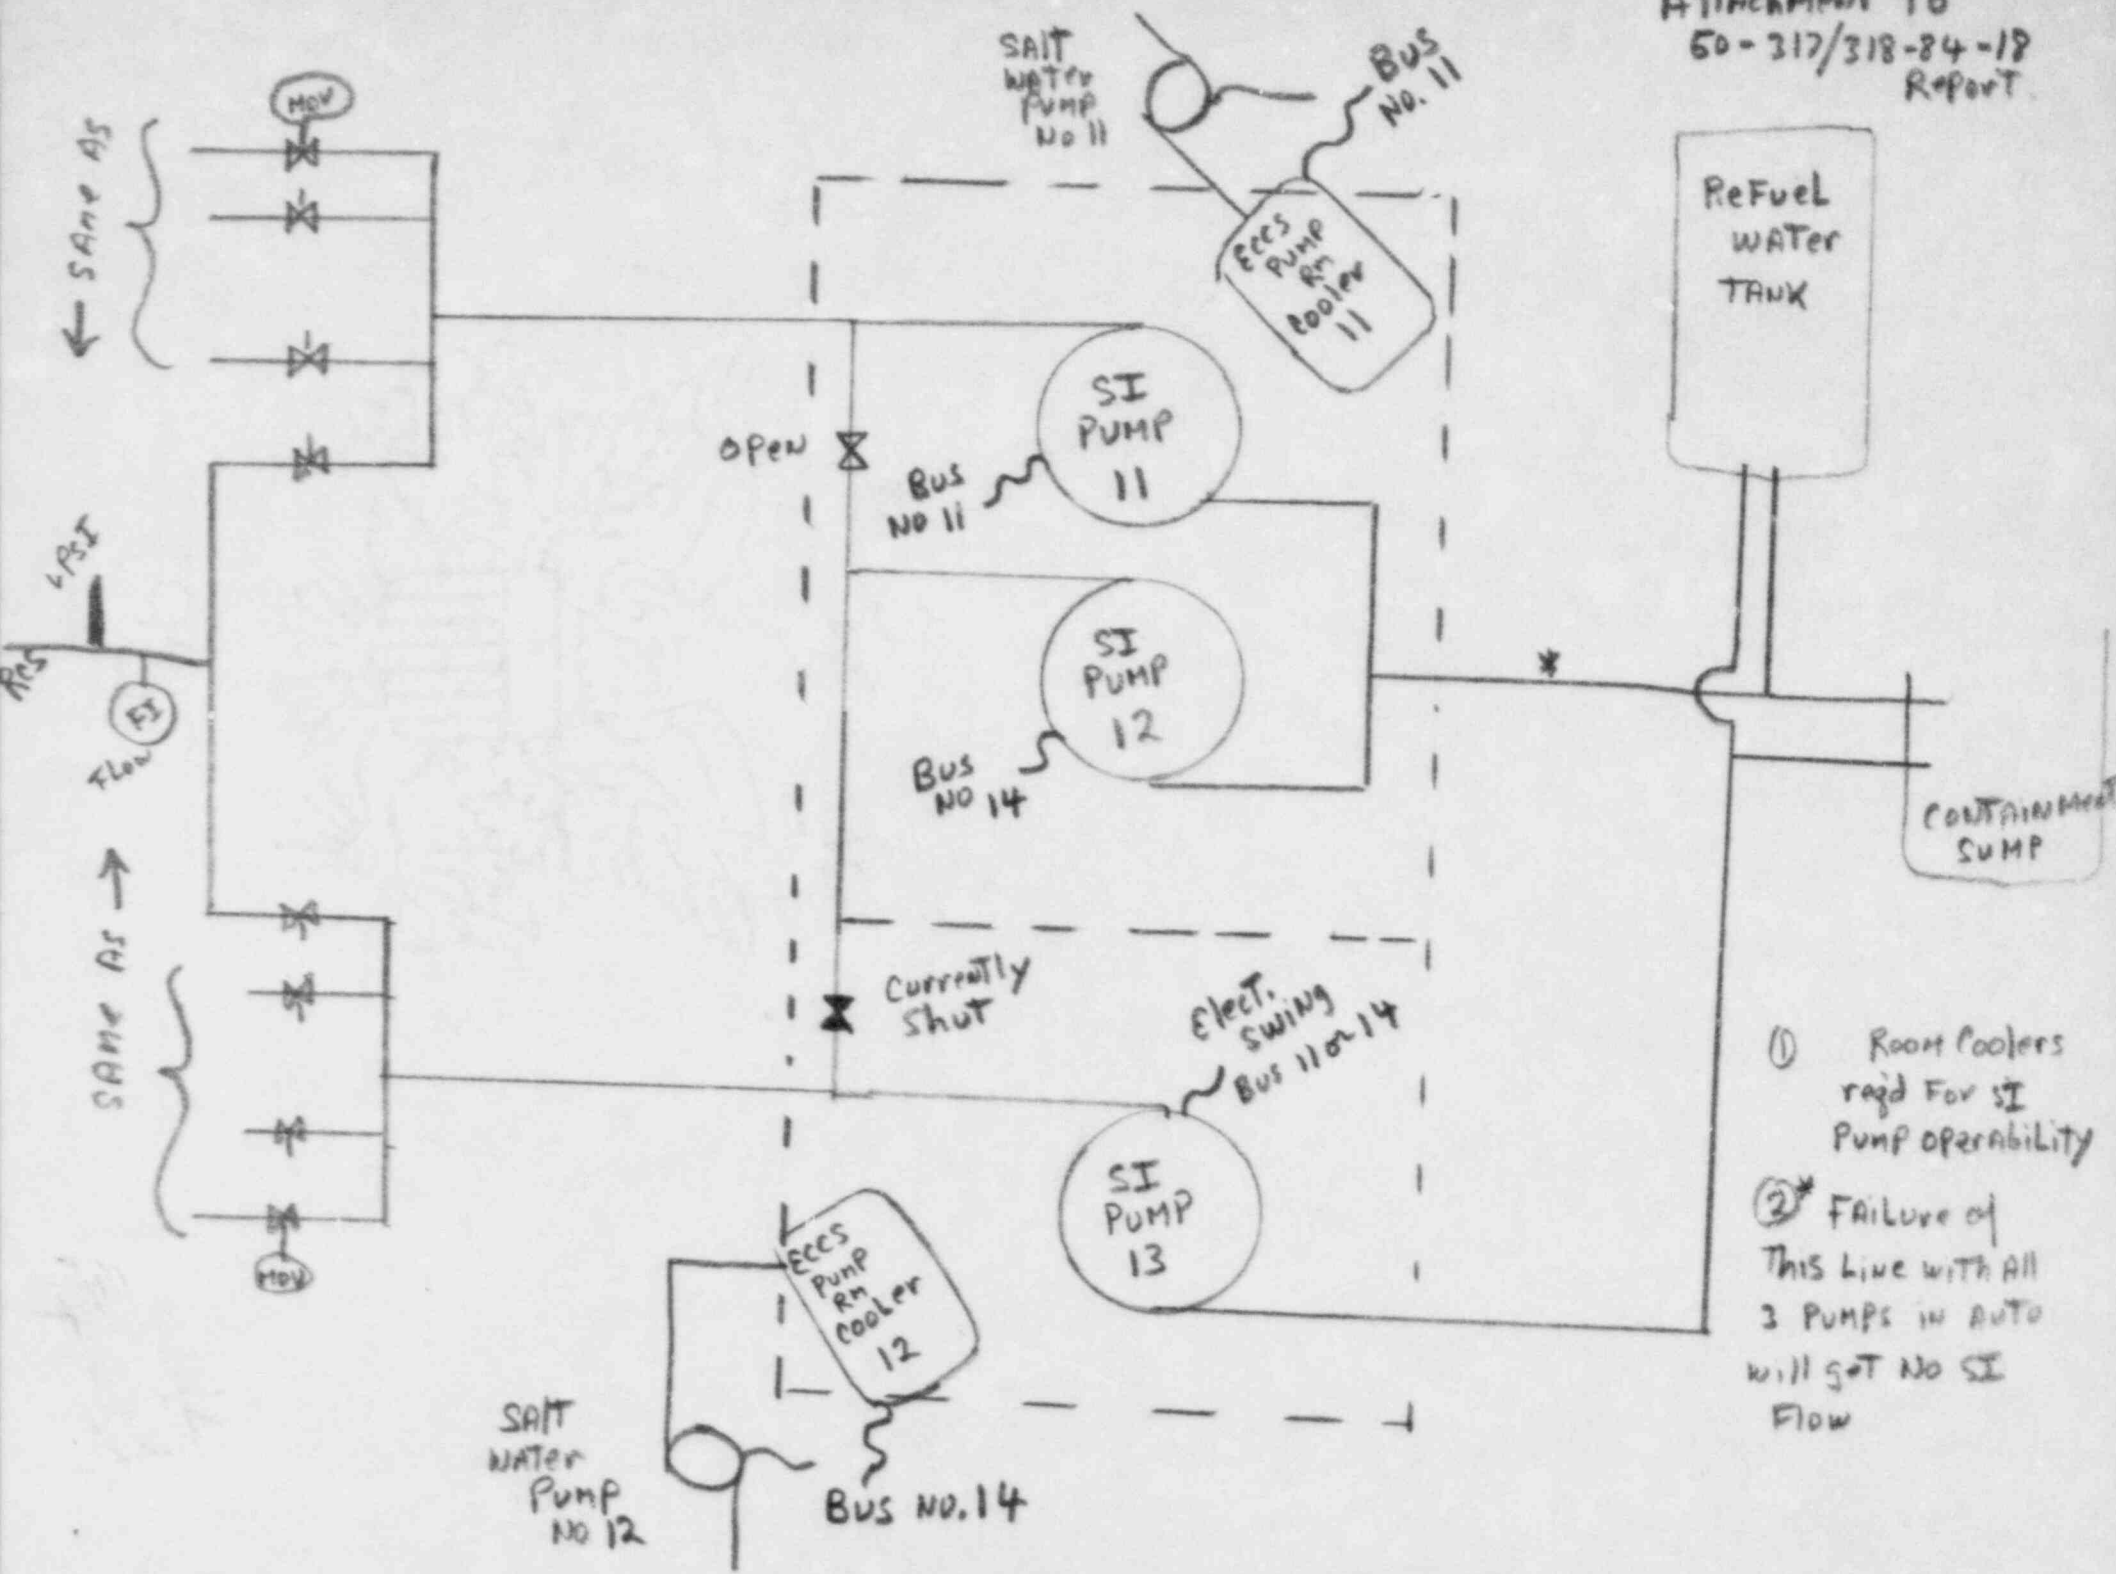 Attachment to
50-317/318-84-18
Report
MOV
← SAme AS
SAlT
WATer
Pump
No 11
Bus
No. 11
ECCS
PUMP
Rm
Cooler
11
ReFueL
WATer
TANK
SI
PUMP
11
OPeN
Bus
No 11
LPSI
RCS
FI
FLOW
SI
PUMP
12
Bus
NO 14
*
CONTAINMENT
SUMP
SAme AS →
Currently
Shut
Elect.
Swing
Bus 11 or 14
SI
PUMP
13
MOV
ECCS
Pump
Rm
Cooler
12
SAlT
WATer
Pump
No 12
Bus No. 14
① Room Coolers
req'd For SI
Pump OperAbiLiTy
②* FAiLure of
This Line with All
3 Pumps in Auto
will get No SI
Flow